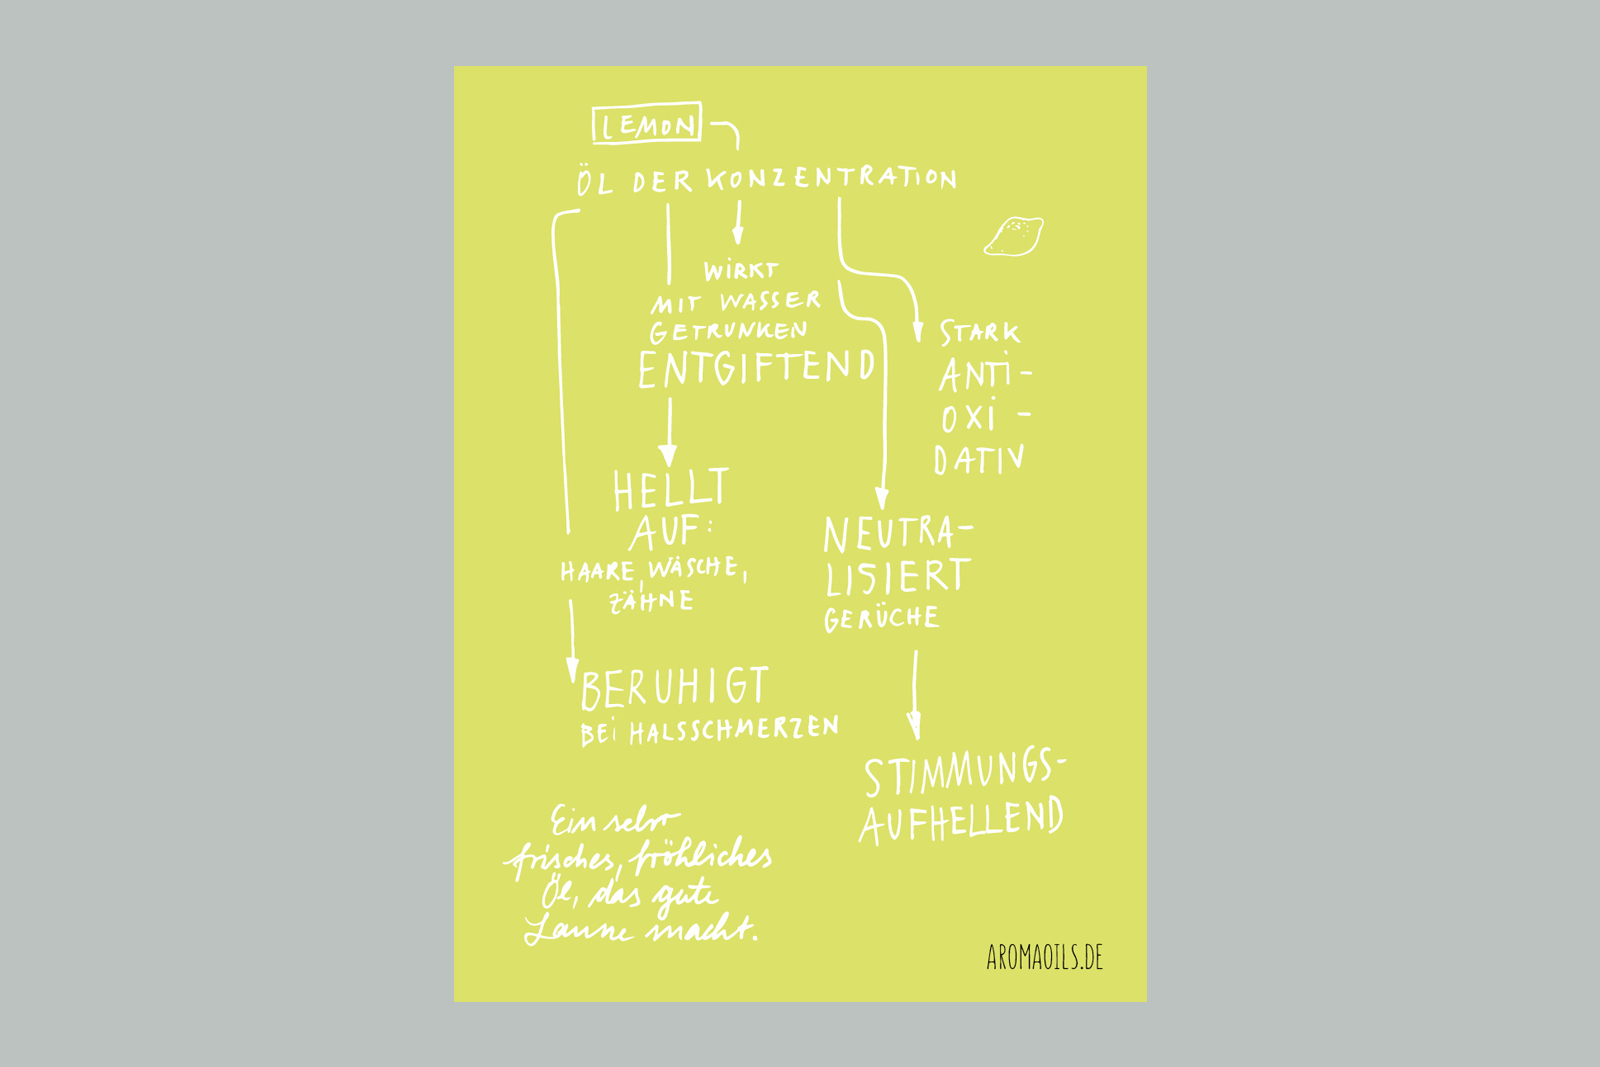 LEMON
ÖL DER KONZENTRATION
WIRKT
MIT WASSER
GETRUNKEN
ENTGIFTEND
STARK
ANTI-
OXI-
DATIV
HELLT
AUF:
HAARE, WÄSCHE,
ZÄHNE
NEUTRA-
LISIERT
GERÜCHE
BERUHIGT
BEI HALSSCHMERZEN
STIMMUNGS-
AUFHELLEND
Ein sehr
frisches, fröhliches
Öl, das gute
Laune macht.
AROMAOILS.DE